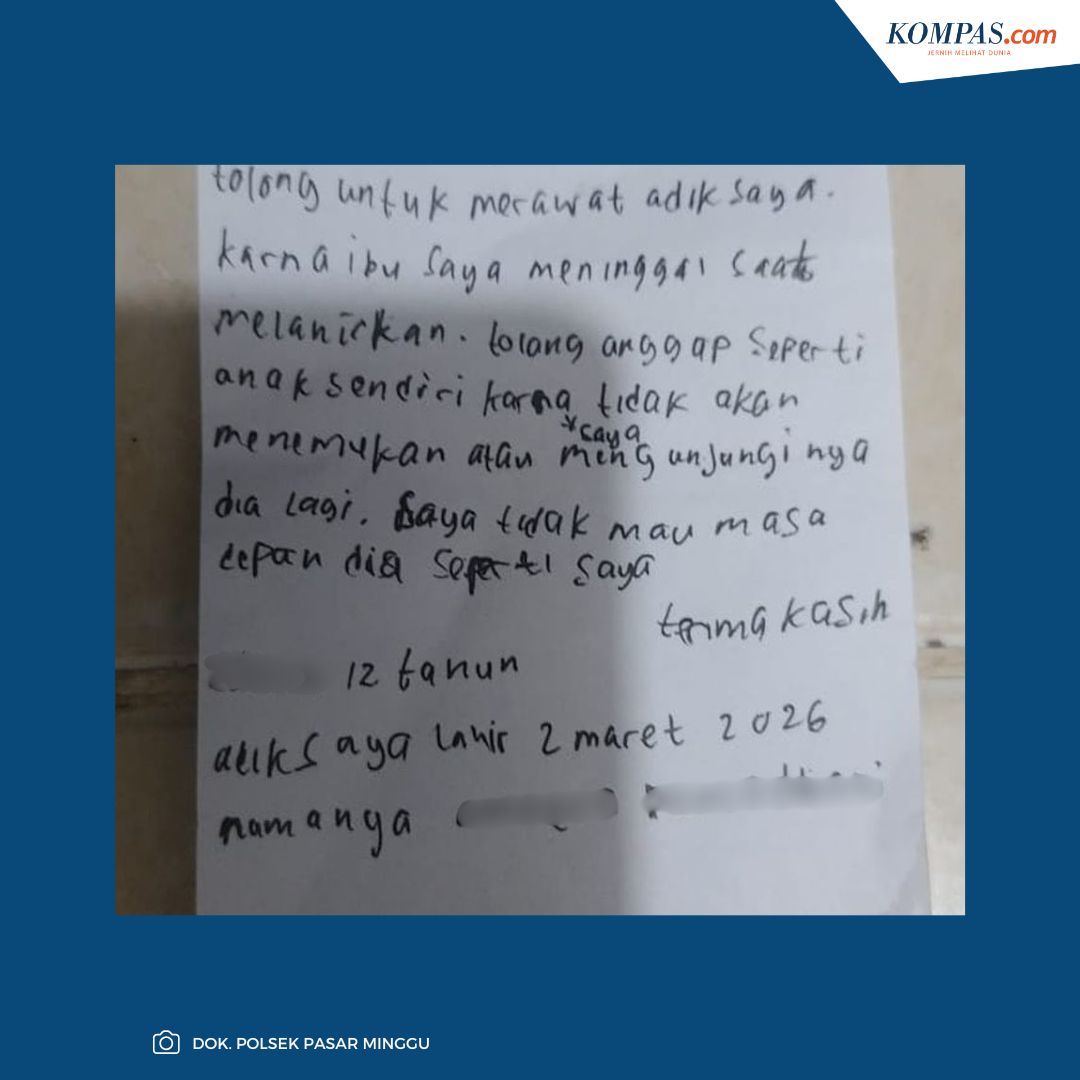 KOMPAS.com
JERNIH MELIHAT DUNIA
tolong untuk merawat adik saya.
karna ibu saya meninggal saat
melahirkan. tolong anggap seperti
anak sendiri karna tidak akan
saya
menemukan atau mengunjungi nya
dia lagi. saya tidak mau masa
depan dia seperti saya
terima kasih
12 tahun
adik saya lahir 2 maret 2026
namanya
DOK. POLSEK PASAR MINGGU